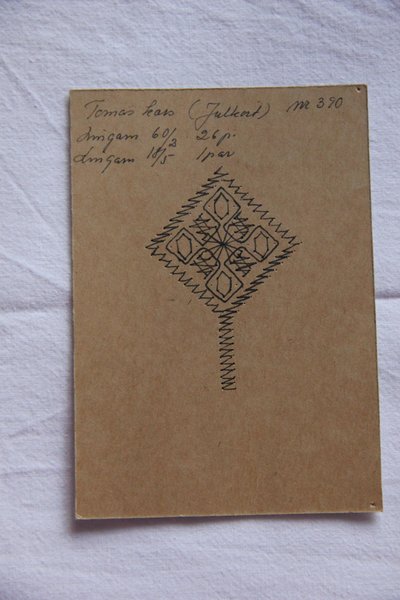 Tomas kars (Julkort) nr 390
Lingarn 60/2 26 p.
Lingarn 18/5 1 par